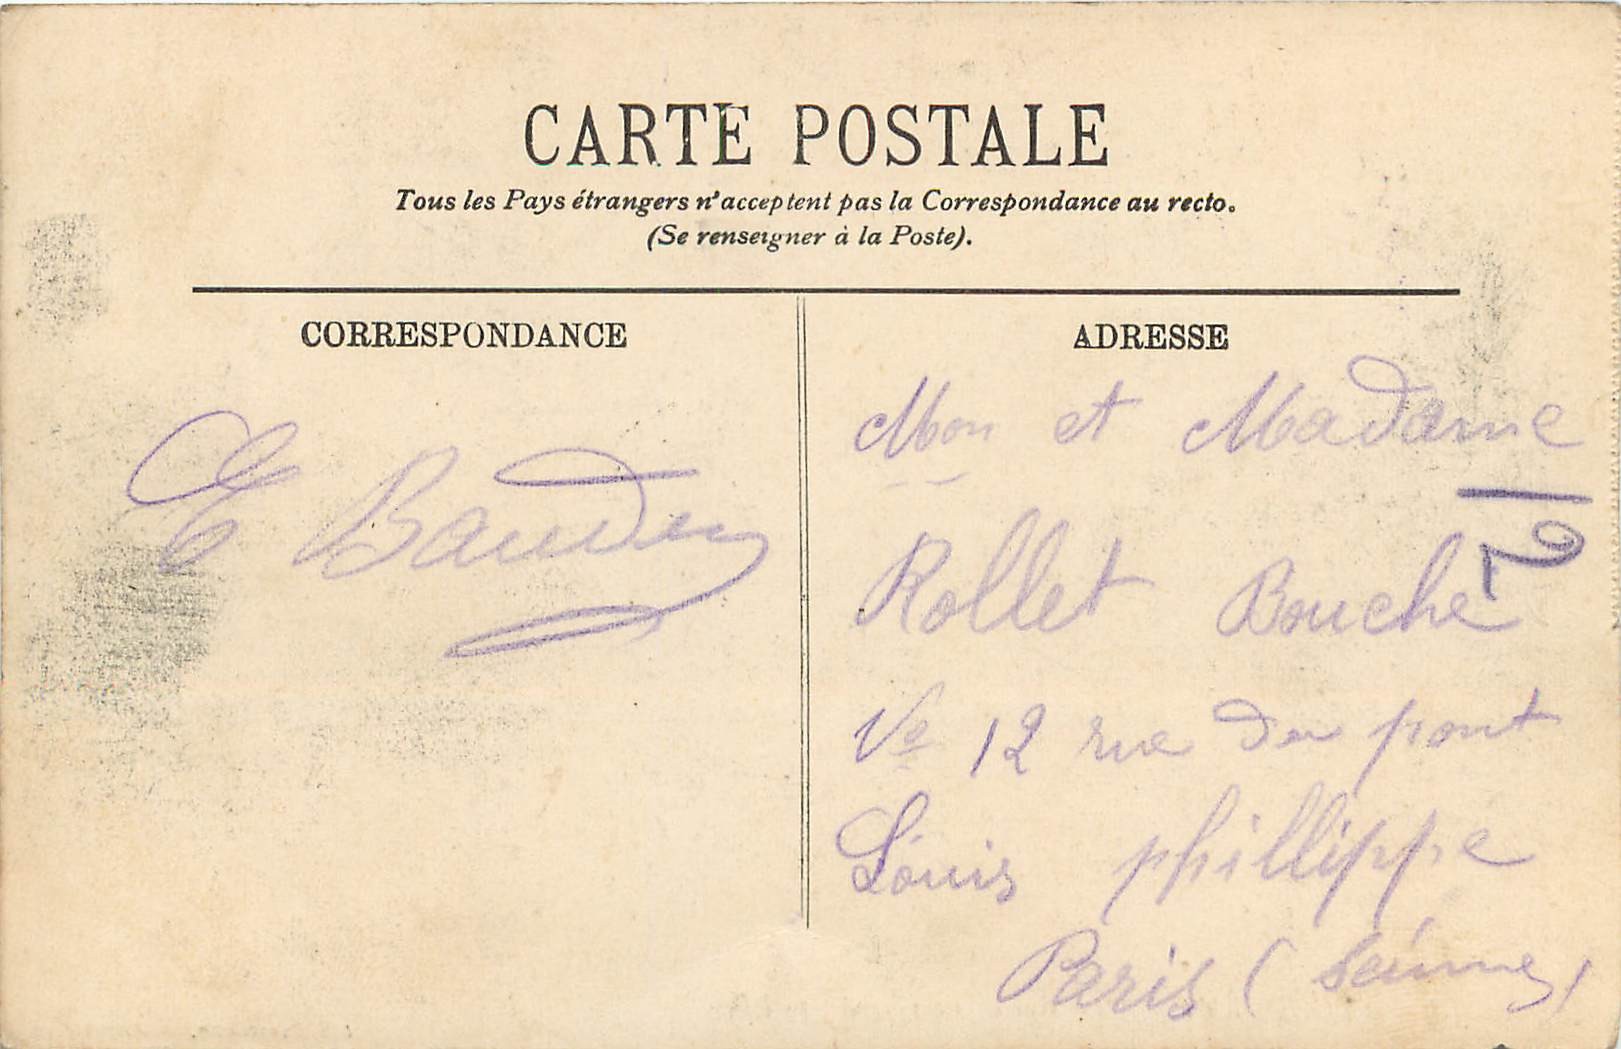 CARTE POSTALE
Tous les Pays étrangers n'acceptent pas la Correspondance au recto.
(Se renseigner à la Poste).
CORRESPONDANCE
E Baudey
ADRESSE
Mon et Madame
Rollet Bouche
Ve 12 rue du pont
Louis phillippe
Paris (Seinne)
12